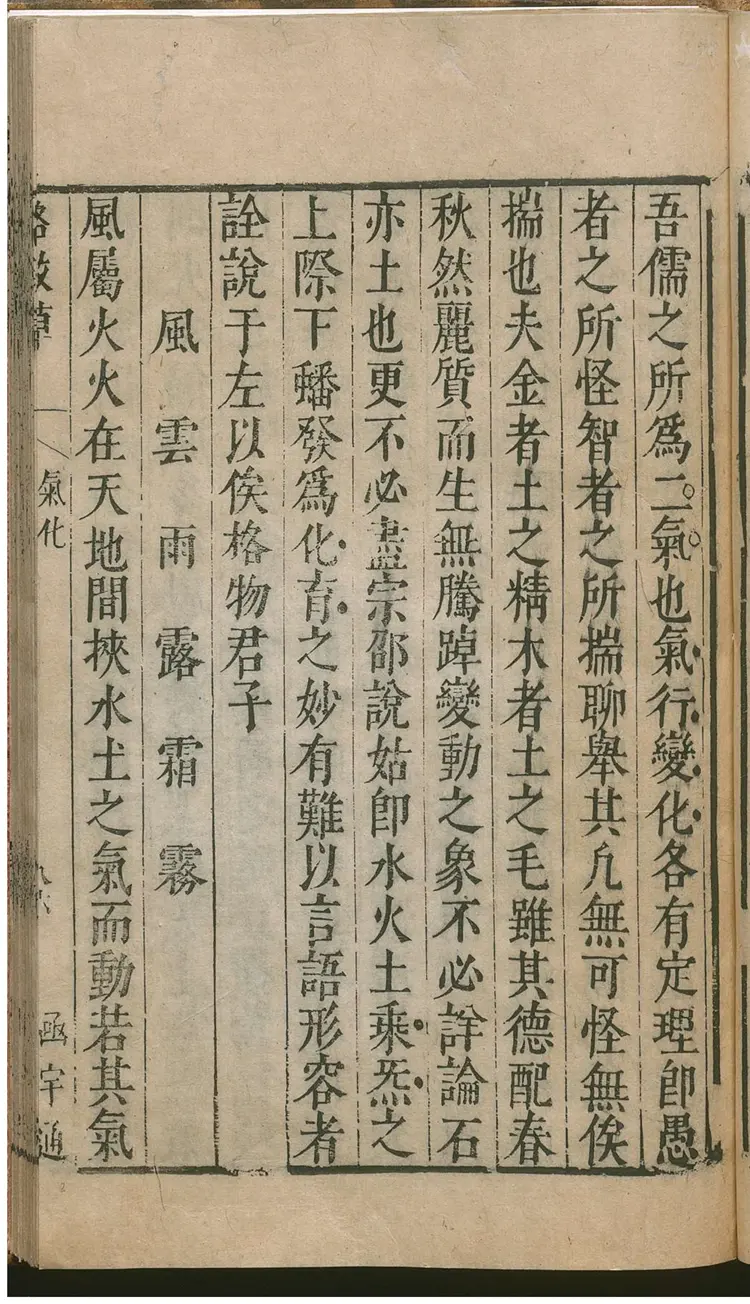 吾儒之所爲二氣也氣行變化各有定理卽愚
者之所怪智者之所揣聊舉其凡無可怪無俟
揣也夫金者土之精木者土之毛雖其德配春
秋然麗質而生無騰踔變動之象不必詳論石
亦土也更不必盡宗邵說姑卽水火土乘炁之
上際下蟠發爲化育之妙有難以言語形容者
詮說于左以俟格物君子
風雲雨露霜霧
風屬火火在天地間挾水土之氣而動若其氣
格致草
氣化
函宇通